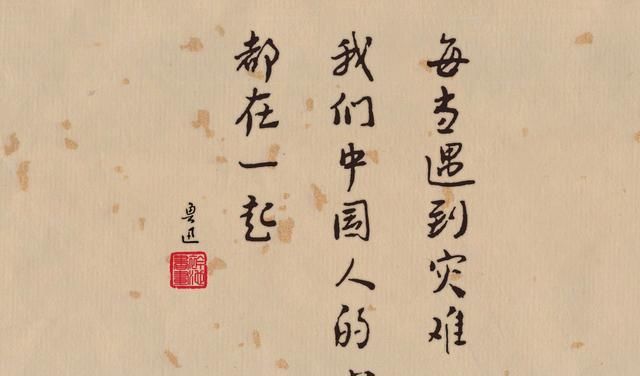 每当遇到灾难
我们中国人的
都在一起
鲁迅